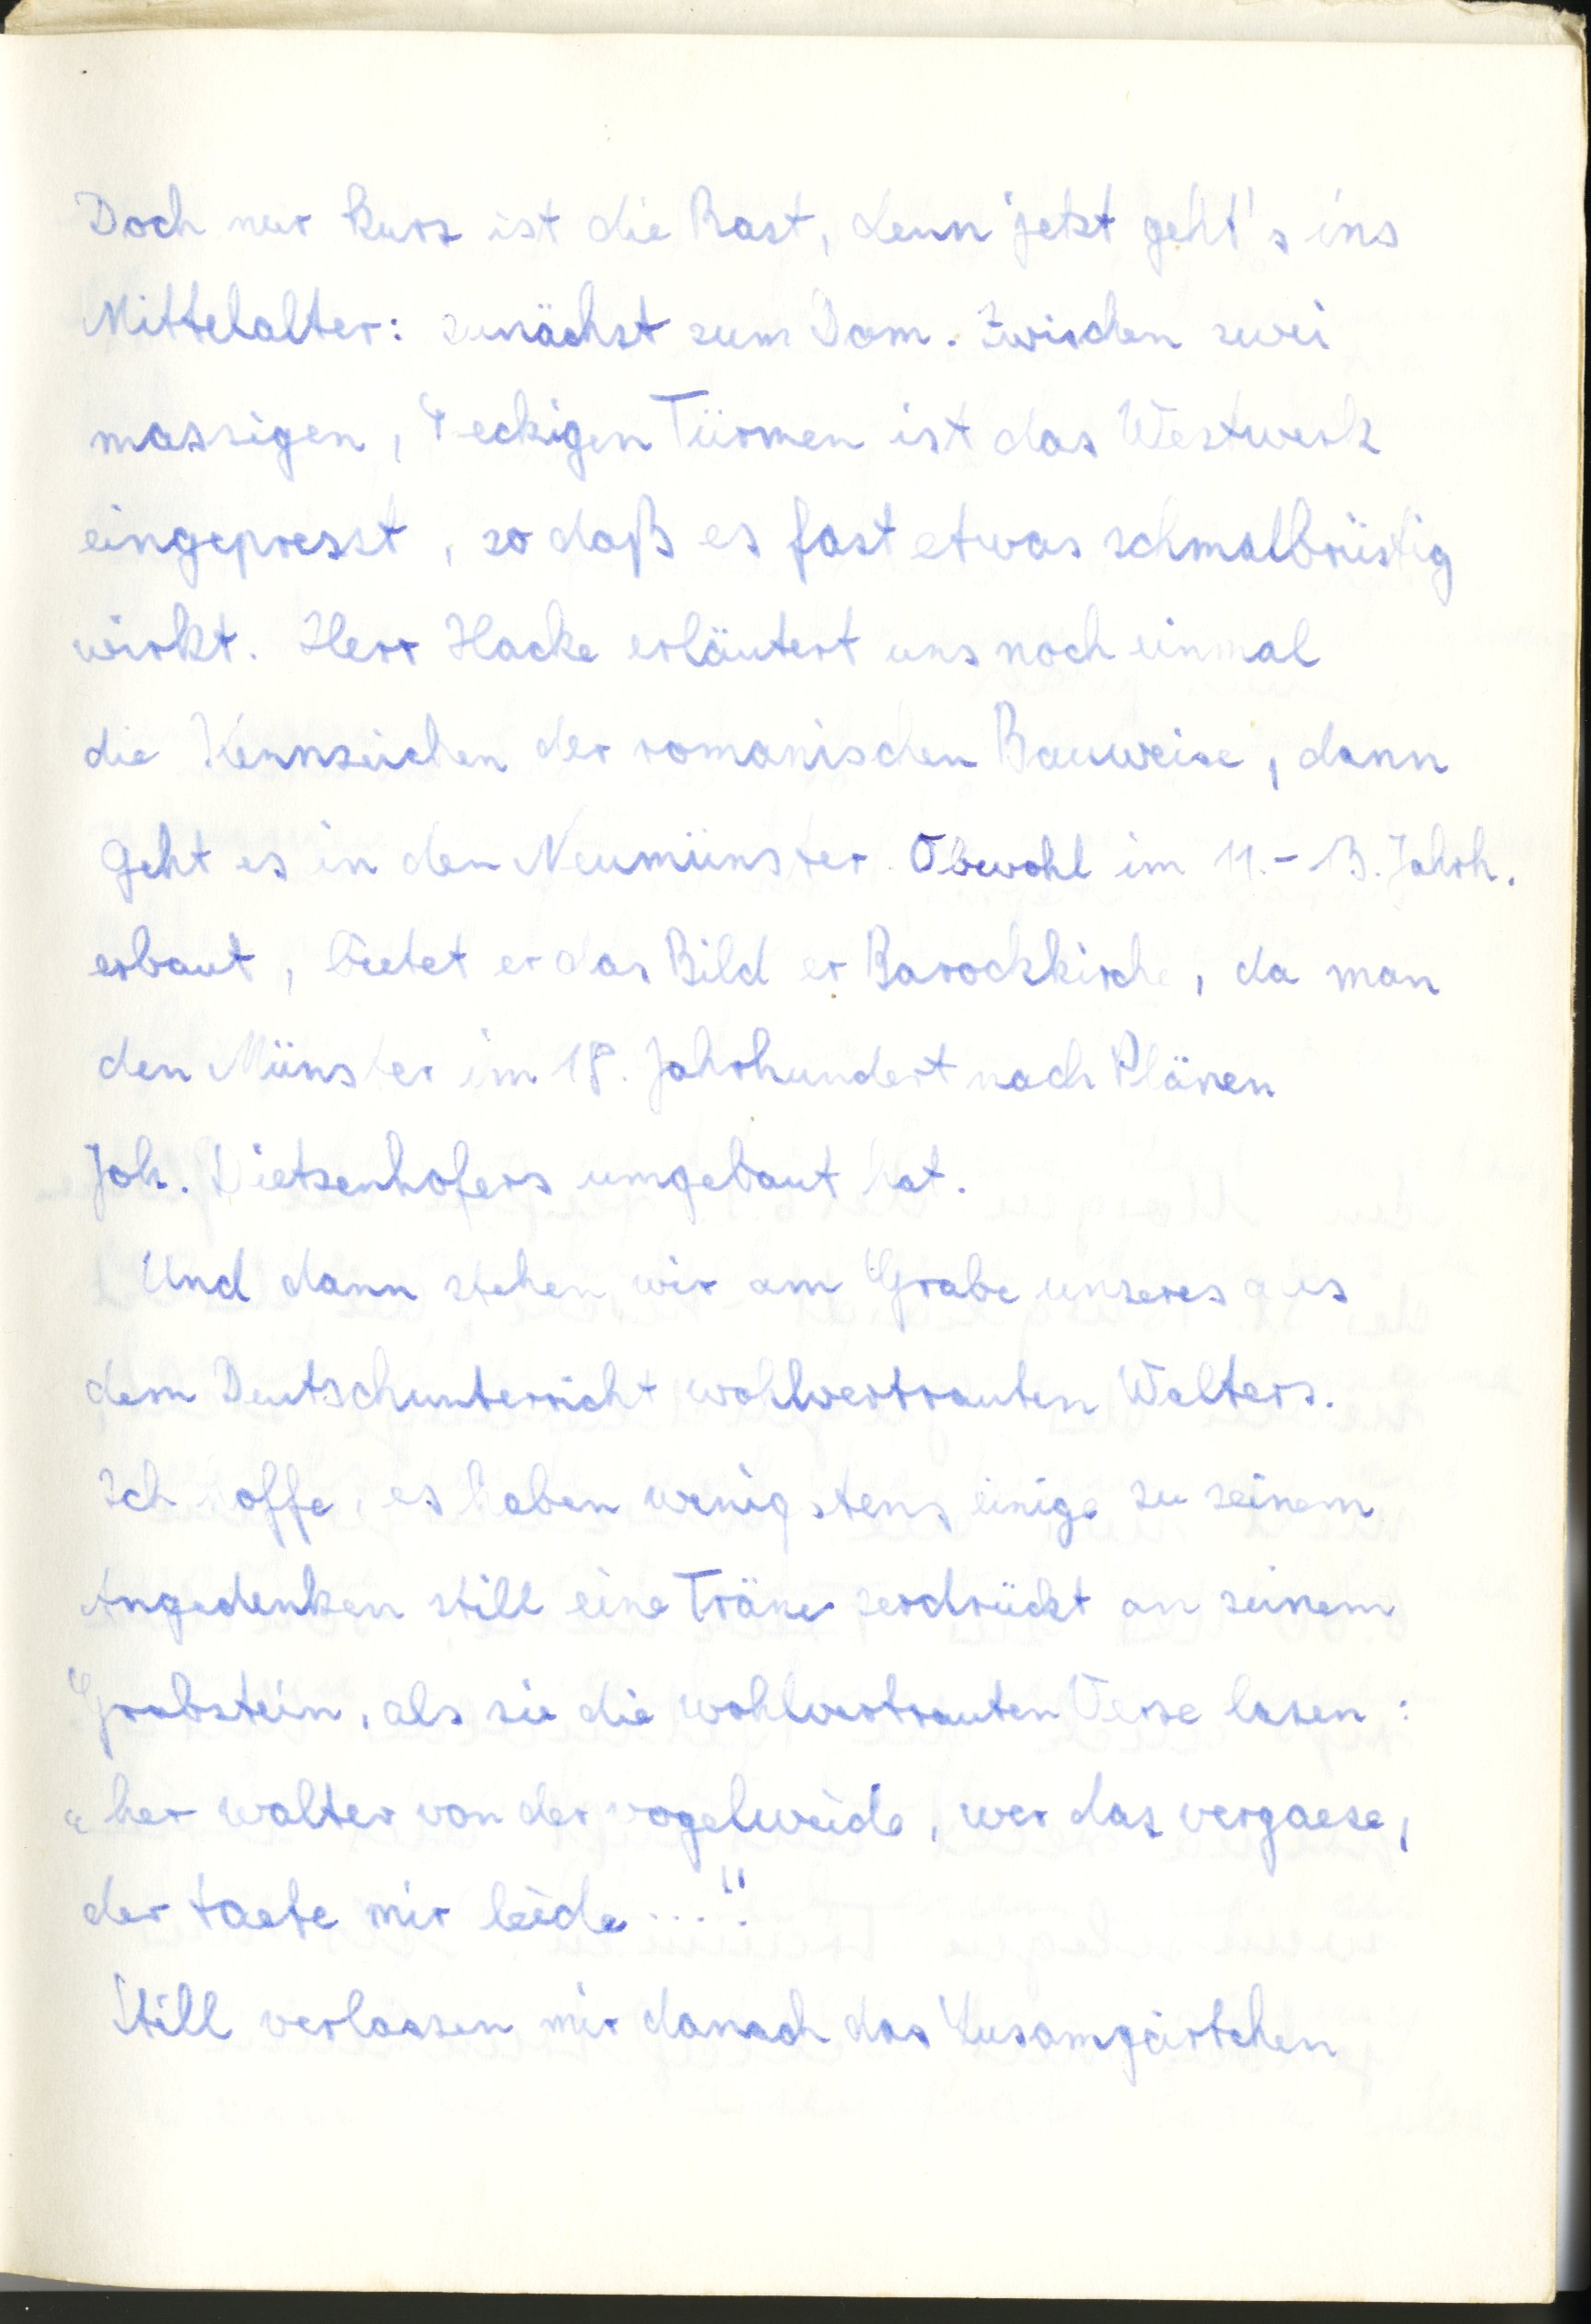 Doch nur kurz ist die Rast, denn jetzt geht's ins
Mittelalter: zunächst zum Dom. Zwischen zwei
massigen, 4 eckigen Türmen ist das Westwerk
eingepresst, so daß es fast etwas schmalbrüstig
wirkt. Herr Hacke erläutert uns noch einmal
die Kennzeichen der romanischen Bauweise, dann
geht es in den Neumünster. Obwohl im 11.-13. Jahrh.
erbaut, bietet er das Bild er Barockkirche, da man
den Münster im 18. Jahrhundert nach Plänen
Joh. Dietzenhofers umgebaut hat.
Und dann stehen wir am Grabe unseres aus
dem Deutschunterricht wohlvertrauten Walters.
Ich hoffe, es haben wenigstens einige zu seinem
Angedenken still eine Träne zerdrückt an seinem
Grabstein, als sie die wohlvertrauten Verse lasen:
„her walter von der vogelweide, wer das vergaese,
der taete mir leide ...."
Still verlassen wir danach das Lusamgärtchen